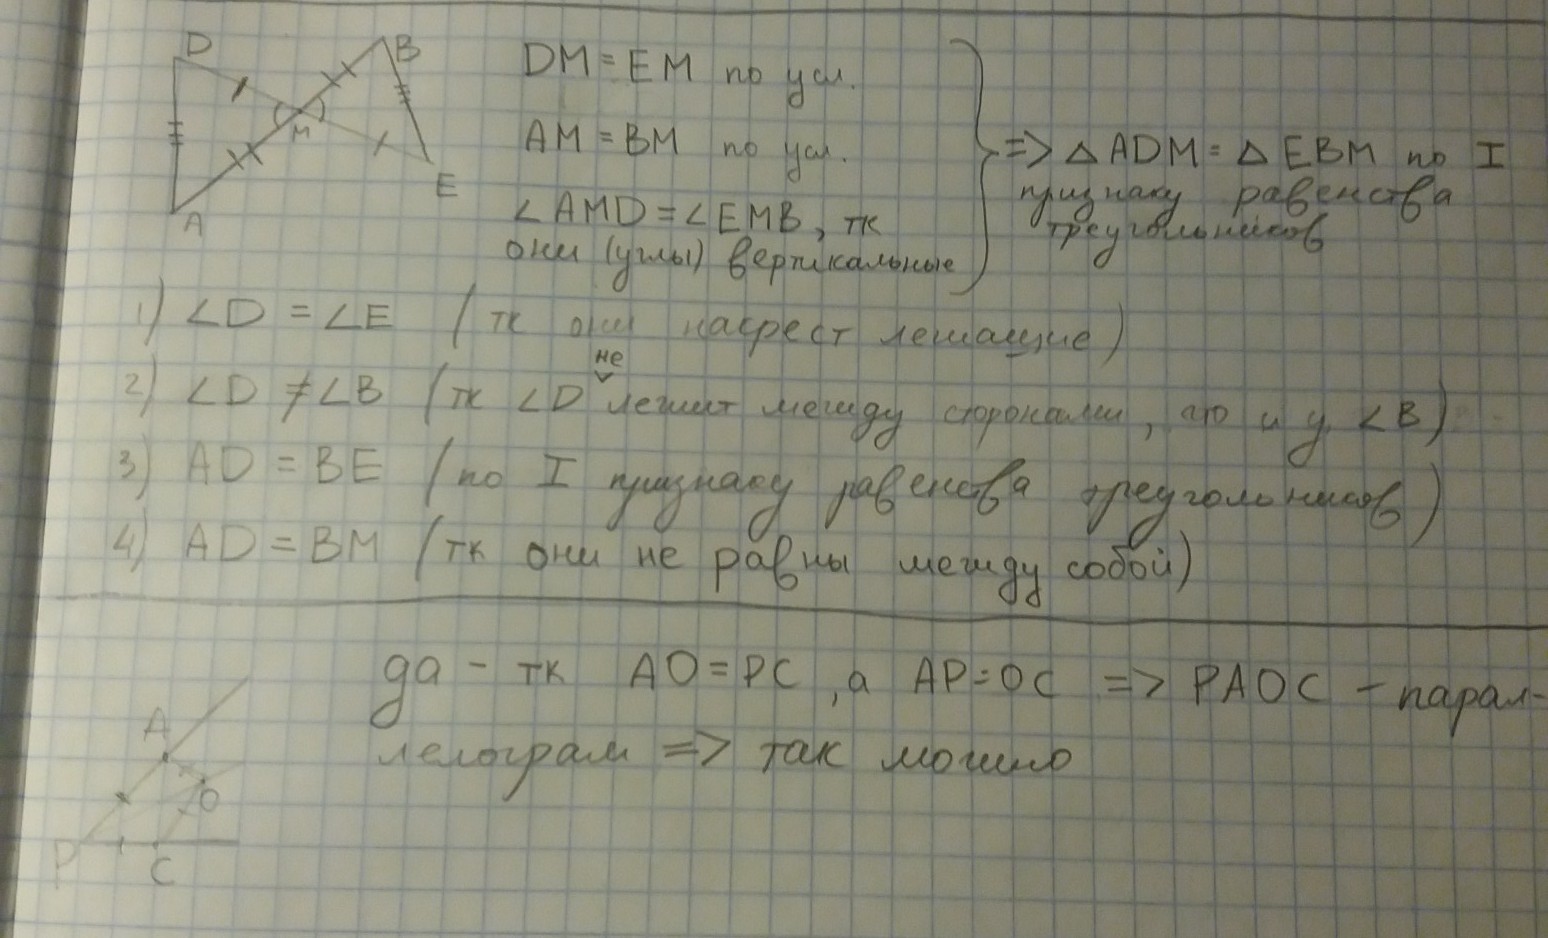 D
B
DM = EM по усл.
M
AM = BM по усл.
=> △ ADM = △ EBM по I
признаку равенства
треугольников
E
A
∠AMD = ∠EMB, тк
они (углы) вертикальные
1) ∠D = ∠E (тк они накрест лежащие)
не
2) ∠D ≠ ∠B (тк ∠D лежит между сторонами, и у ∠B)
3) AD = BE (по I признаку равенства треугольников)
4) AD = BM (тк они не равны между собой)
да - тк AO = PC, а AP = OC => PAOC - парал-
лелограм => так можно
A
O
P
C